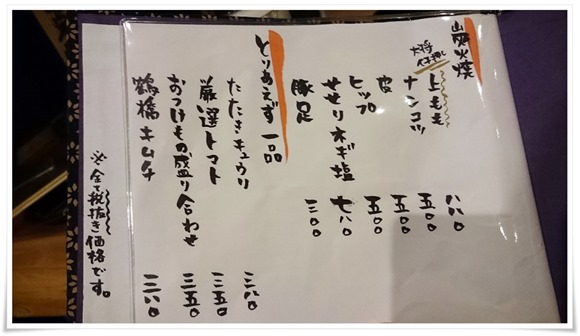 炭火焼
大将イチ押し
上もも 八八〇
ナンコツ 五〇〇
皮 五〇〇
ヒップ 五〇〇
せせりネギ塩 七八〇
豚足 三〇〇
とりあえず一品
たたきキュウリ 三八〇
厳選トマト 三五〇
おつけもの盛り合わせ 三五〇
鶴橋キムチ 三八〇
※全て税抜き価格です。